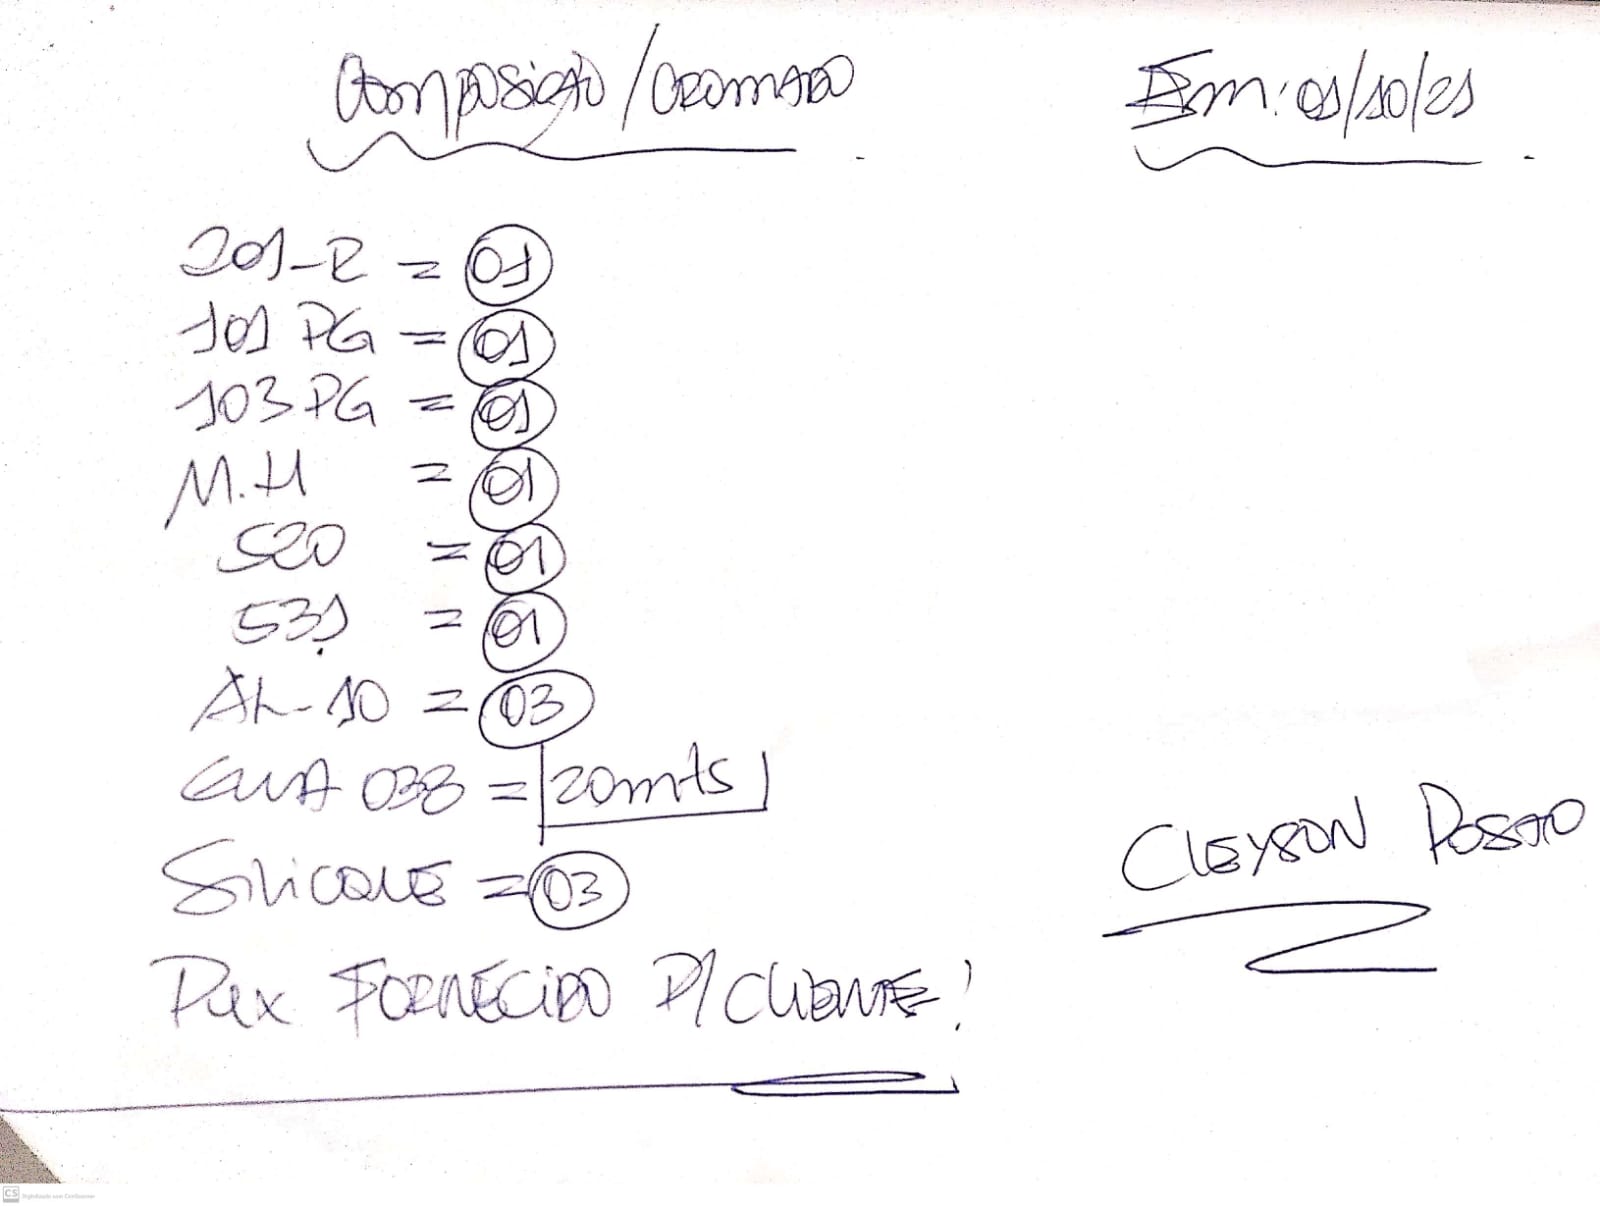 Composição/CROMADO
Em: 01/10/21
201-R = 01
101 PG = 01
103 PG = 01
M.H = 01
520 = 01
531 = 01
AL-10 = 03
038 = 20mts
SILICONE = 03
CLEYSON
Pux FORNECIDO P/ CLIENTE!
CS Digitalizado com CamScanner